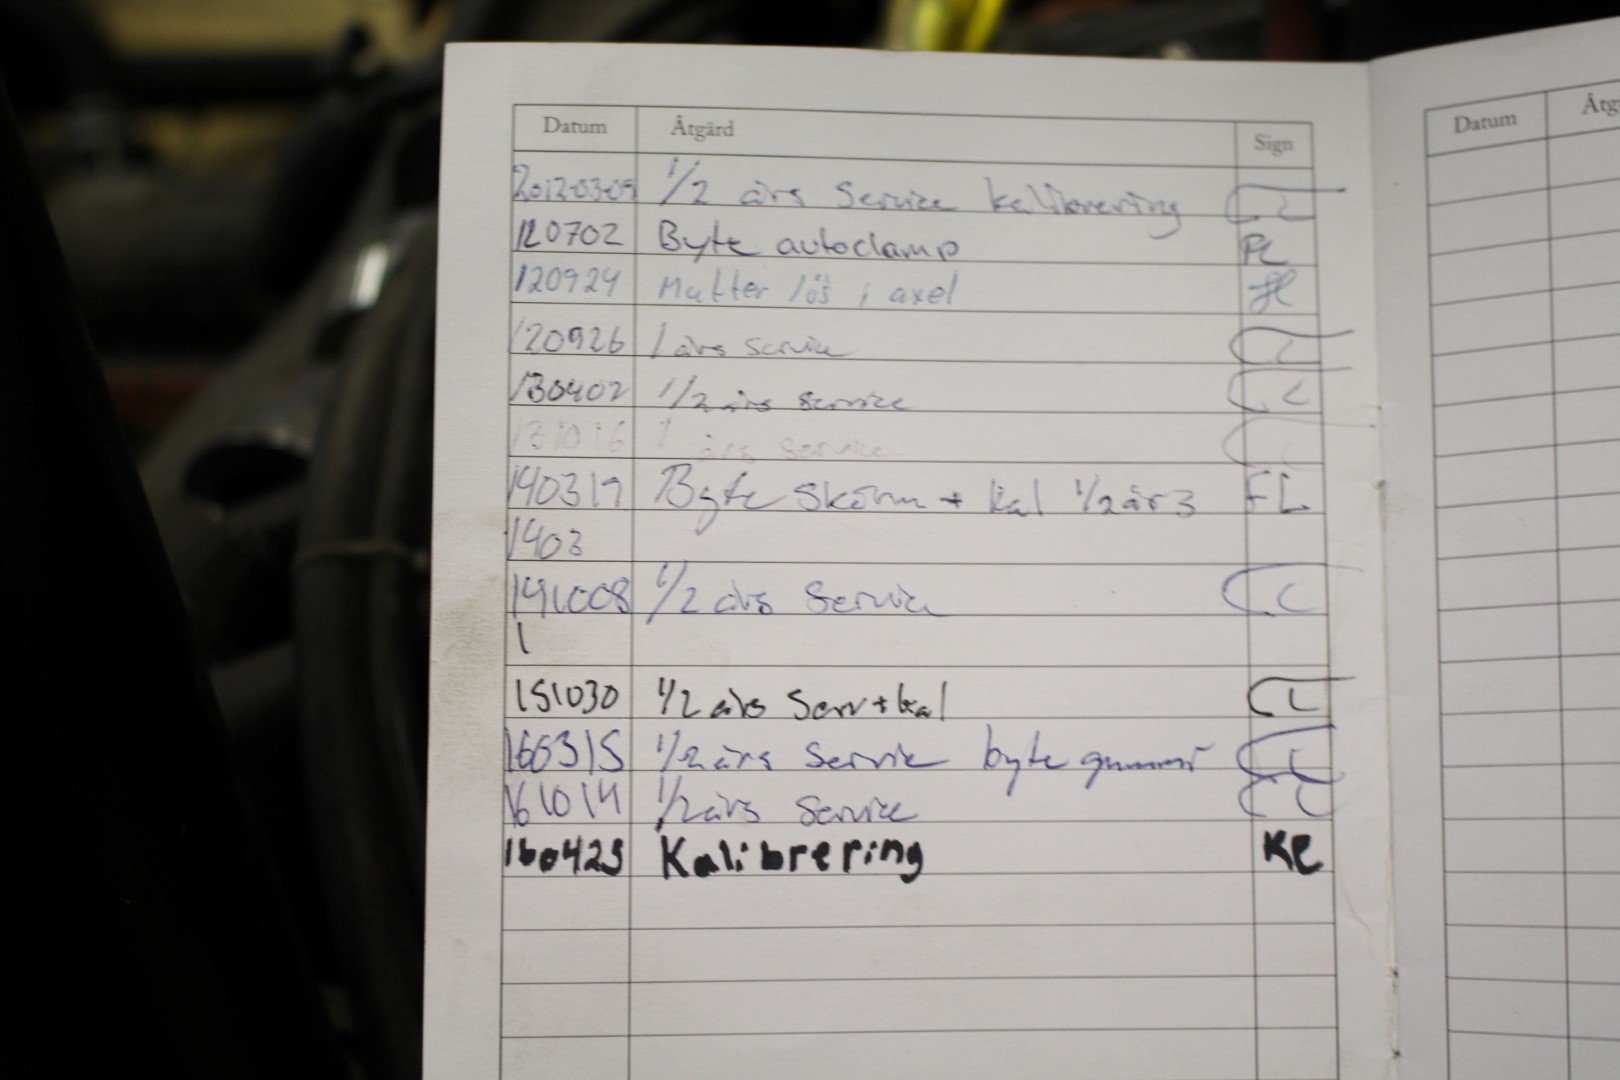 Datum Åtgärd Sign
2012-03-09 1/2 års Service kalibrering
120702 Byte autoclamp PL
120924 Mutter lös i axel
120926 1 års service
130402 1/2 års service
131016 1 års service
140317 Byte + kal 1/2 år FL
1403
141008 1/2 års Service
1
151030 1/2 års Serv + kal
160315 1/2 års Service byte gummi
161014 1/2 års Service
Kalibrering
Datum Åtg